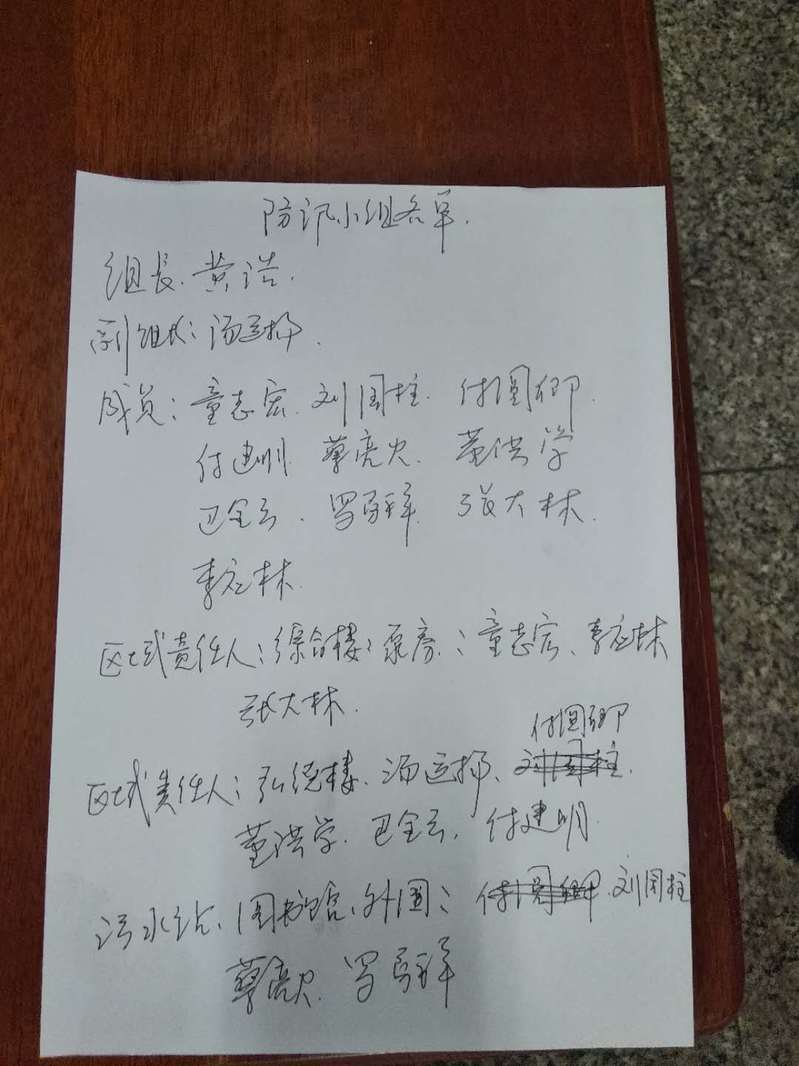 防汛小组名单.
组长.黄浩.
副组长:汤运扬.
成员:童志宏.刘国柱.付国卿.
付建明.蔡亮火.董洪学
卫金云.罗家祥.张大林.
李应林.
区域责任人:综合楼:泵房:童志宏、李应林
张大林.
付国卿
区域责任人:弘德楼.汤运扬、刘国柱.
董洪学.卫金云.付建明.
污水站、图书馆、外围:付国卿.刘国柱
蔡亮火.罗家祥